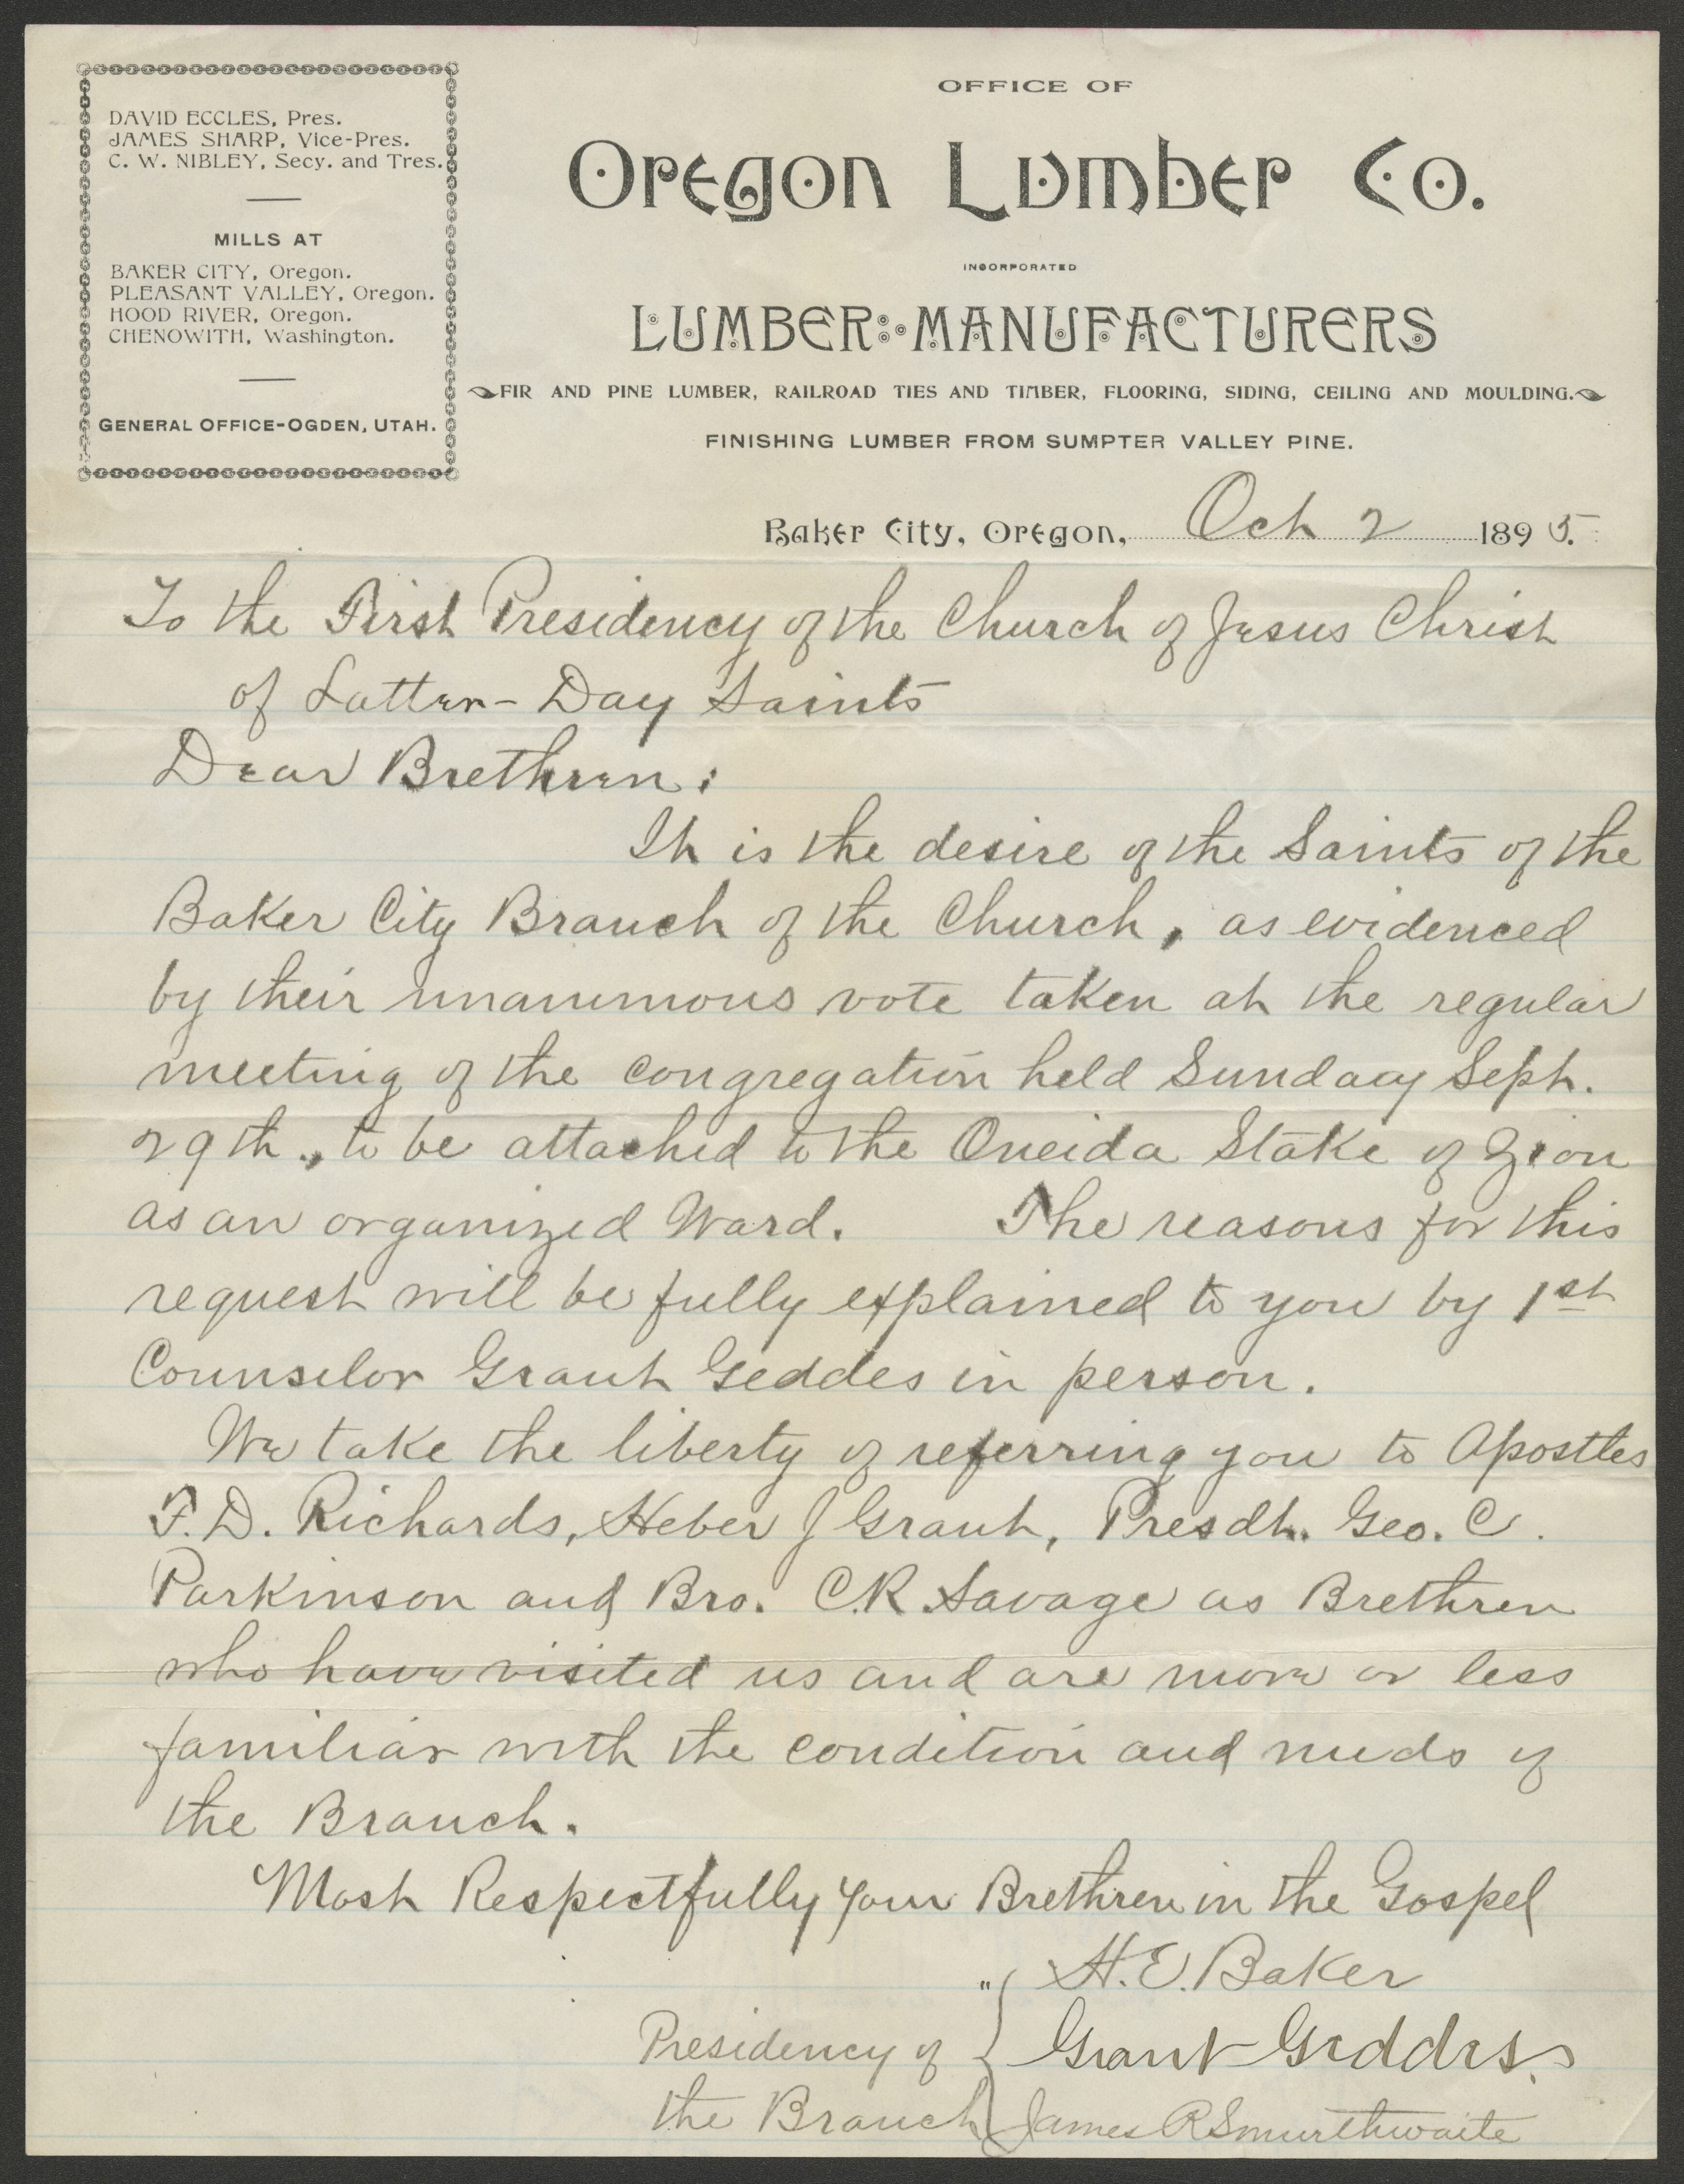 DAVID ECCLES, Pres.
JAMES SHARP, Vice-Pres.
C. W. NIBLEY, Secy. and Tres.
MILLS AT
BAKER CITY, Oregon.
PLEASANT VALLEY, Oregon.
HOOD RIVER, Oregon.
CHENOWITH, Washington.
GENERAL OFFICE-OGDEN, UTAH.
OFFICE OF
Oregon Lumber Co.
INCORPORATED
LUMBER MANUFACTURERS
FIR AND PINE LUMBER, RAILROAD TIES AND TIMBER, FLOORING, SIDING, CEILING AND MOULDING.
FINISHING LUMBER FROM SUMPTER VALLEY PINE.
Baker City, Oregon, Oct 2 1895.
To the First Presidency of the Church of Jesus Christ
of Latter-Day Saints
Dear Brethren:
It is the desire of the Saints of the
Baker City Branch of the Church, as evidenced
by their unanimous vote taken at the regular
meeting of the congregation held Sunday Sept.
29th., to be attached to the Oneida Stake of Zion
as an organized Ward. The reasons for this
request will be fully explained to you by 1st
Counselor Grant Geddes in person.
We take the liberty of referring you to Apostles
F. D. Richards, Heber J Grant, Presdt. Geo. C.
Parkinson and Bro. C.R. Savage as Brethren
who have visited us and are more or less
familiar with the condition and needs of
the Branch.
Most Respectfully Your Brethren in the Gospel
" H. E. Baker
Presidency of Grant Geddes.
the Branch James R Smurthwaite